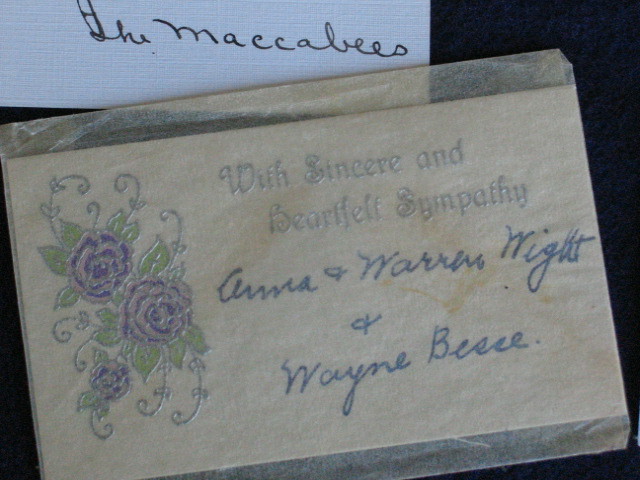 The Maccabees
With Sincere and
Heartfelt Sympathy
Anna & Warren Wight
&
Wayne Besse.